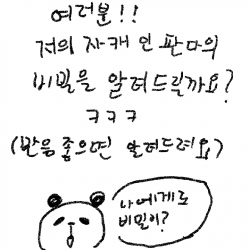 여러분!!
저의 자캐인 판다의
비밀을 알려드릴까요?
ㅋㅋㅋ
(반응 좋으면 알려드려요)
나에게도
비밀이?